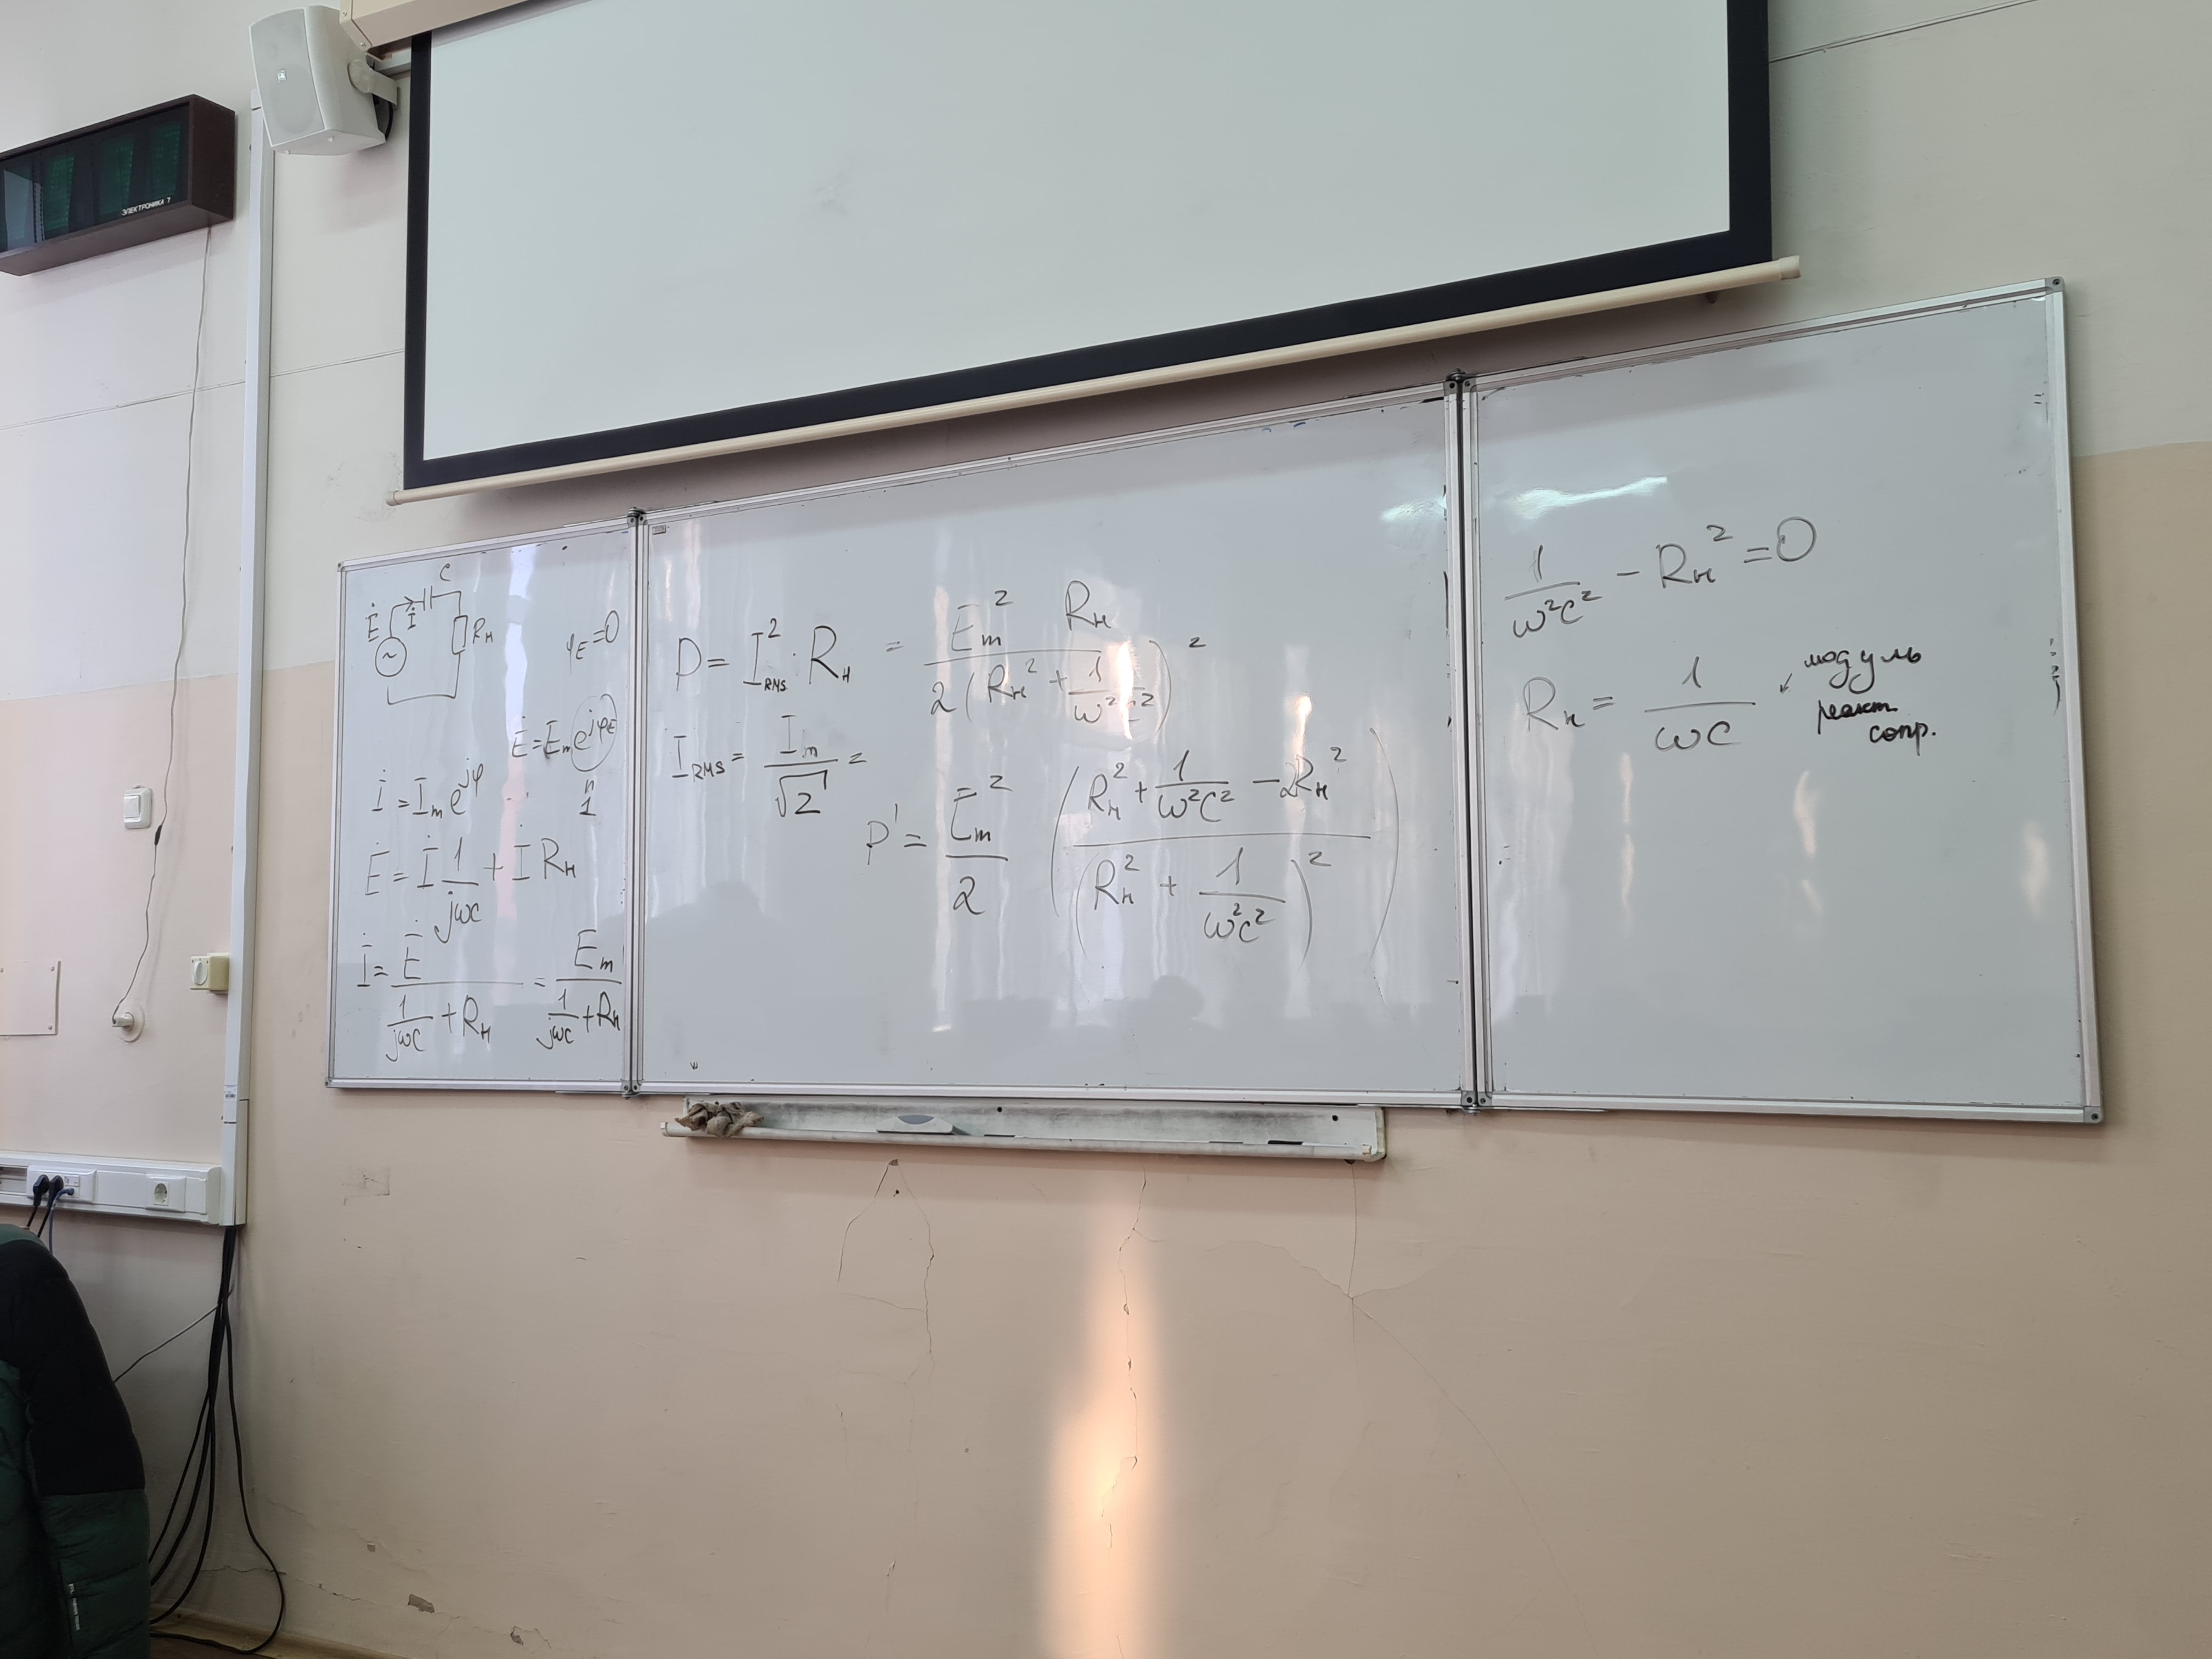 ЭЛЕКТРОНИКА 7
C
Ė İ
Rн
~
φE=0
Ė=Em e^jφE
"
1
İ = Im e^jφ
Ė = İ 1/jωc + İ Rн
İ = Ė/(1/jωc + Rн) = Em/(1/jωc + Rн)
P = I²RMS · Rн = Em² Rн / 2(Rн² + 1/ω²c²)²
IRMS = Im/√2 =
P' = Em²/2 ((Rн² + 1/ω²c² − 2Rн²)/(Rн² + 1/ω²c²)²)
1/ω²c² − Rн² = 0
Rн = 1/ωc
модуль
реакт
сопр.